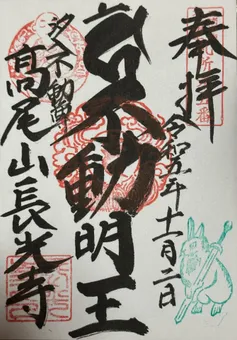 奉拝
令和五年十一月二日
不動明王
不動
高尾山長光寺